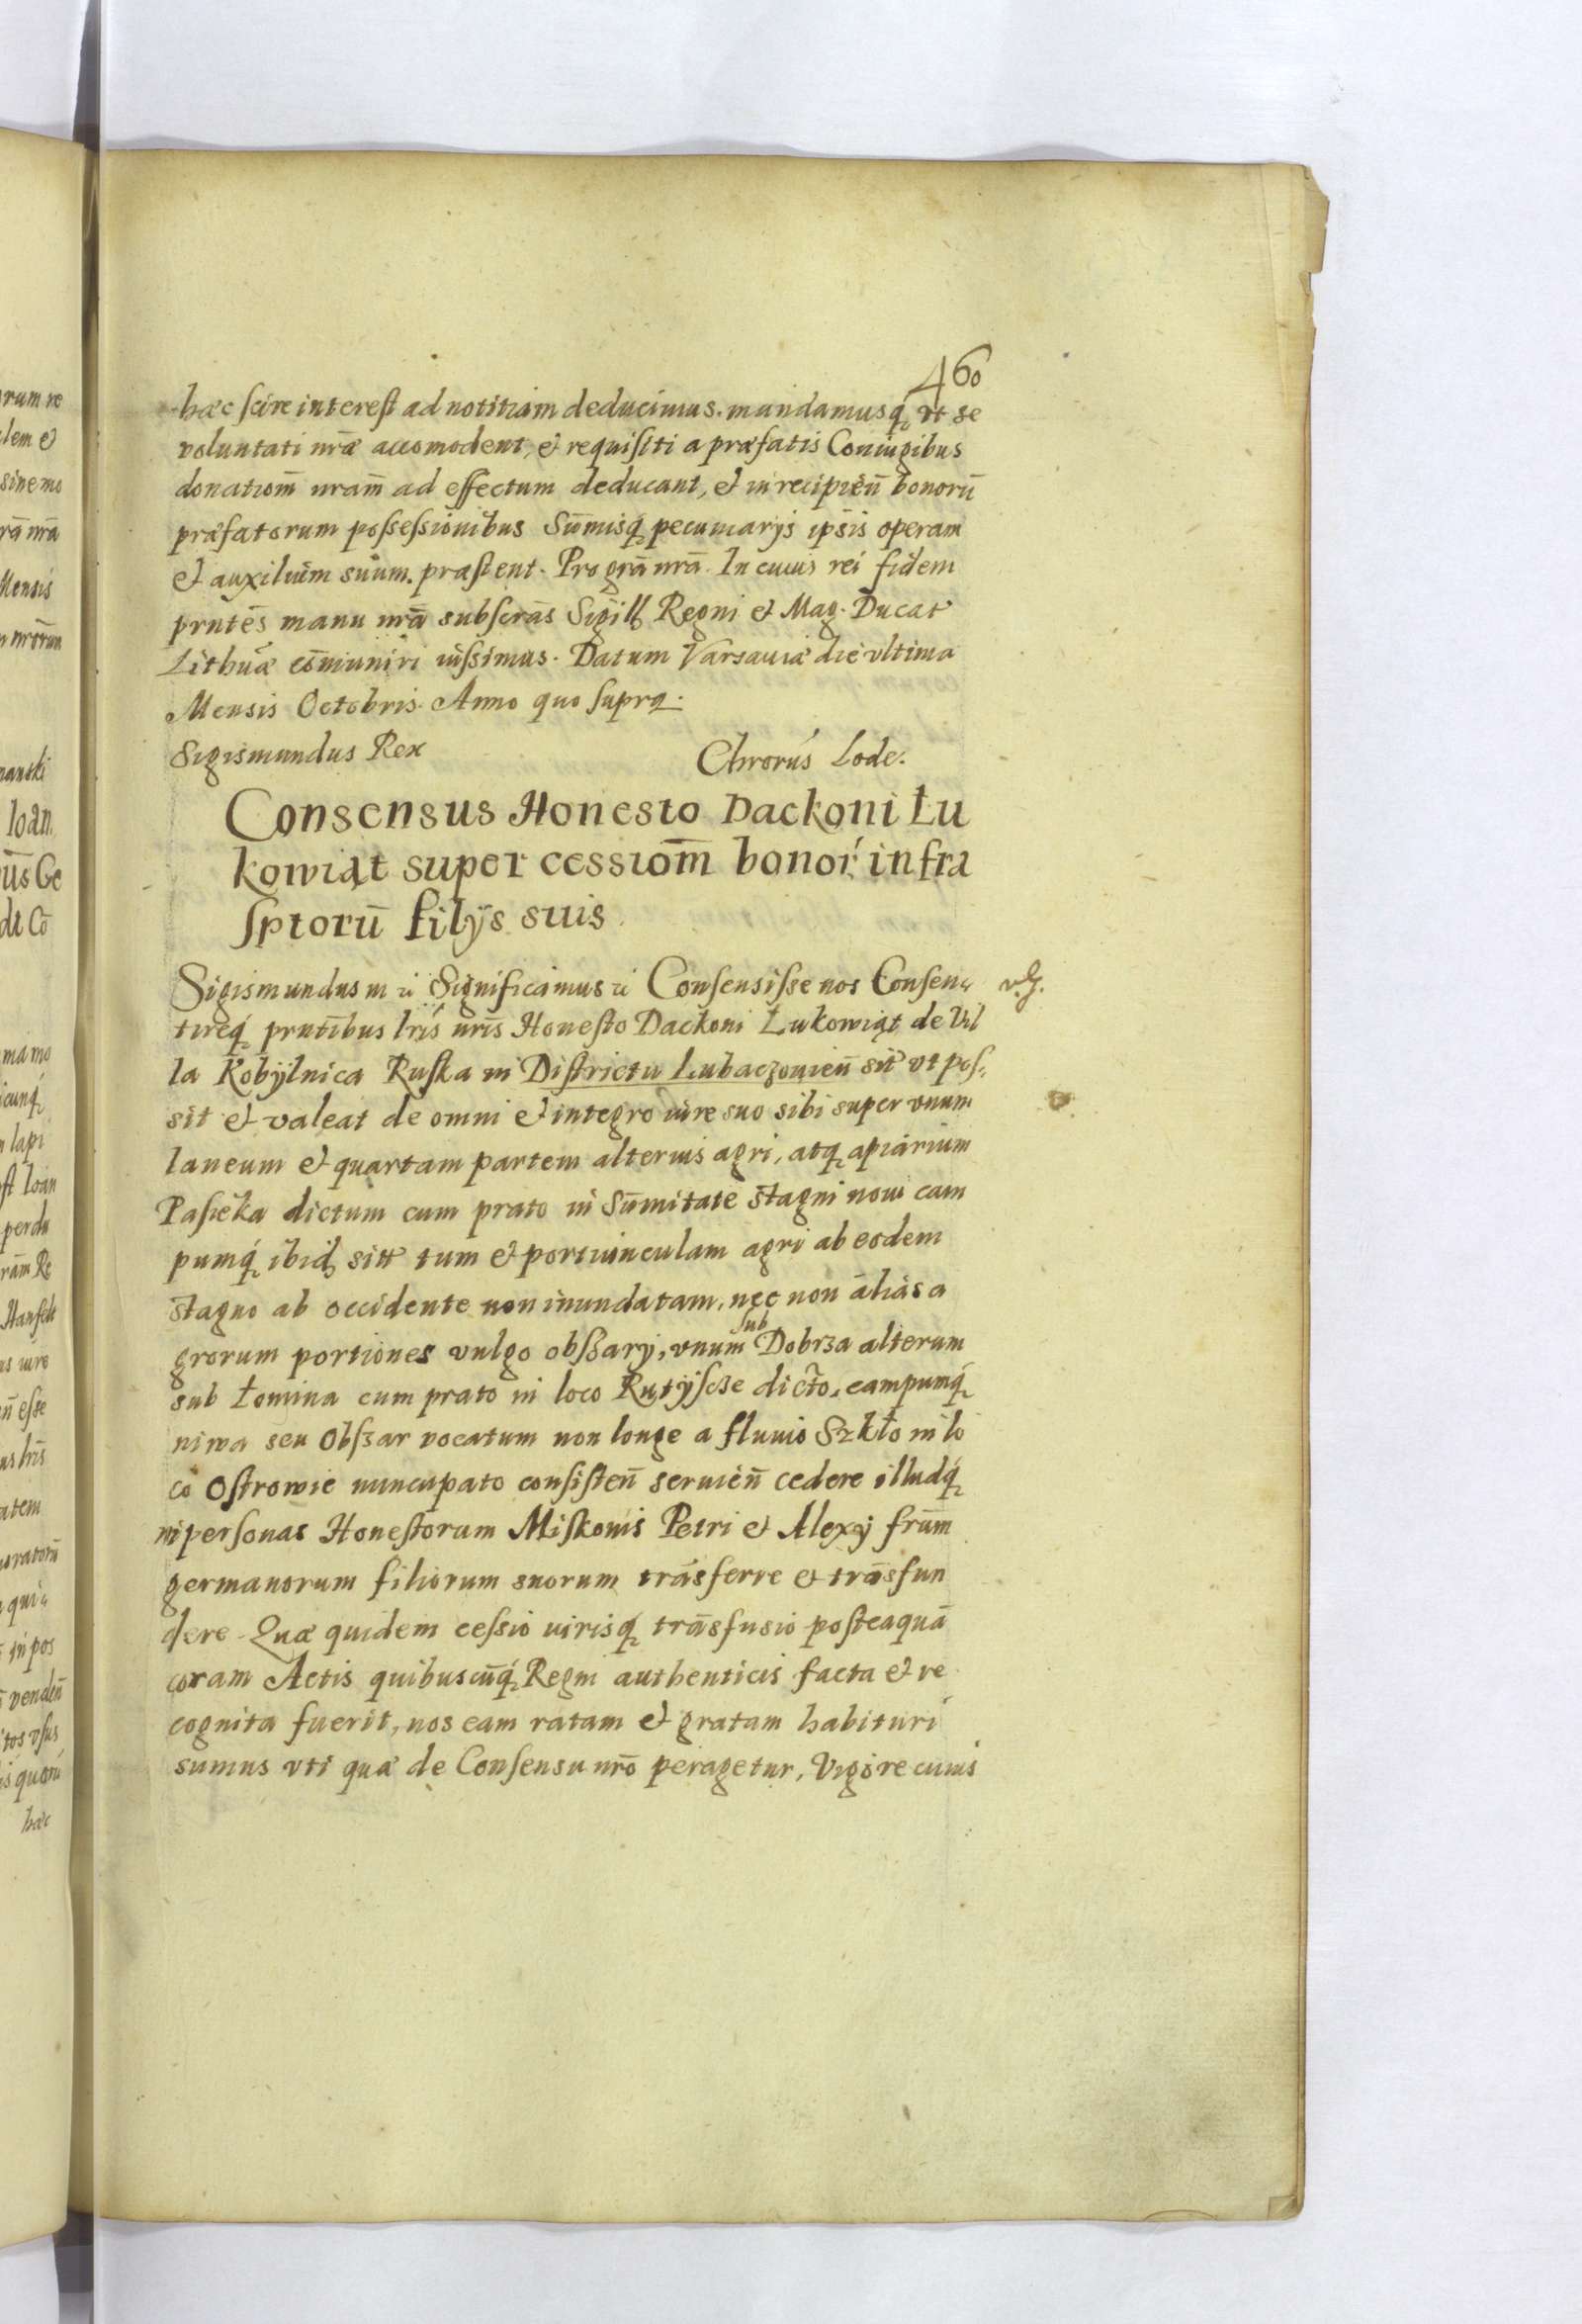 460
hæc scire interest ad notitiam deducimus. mandamusq́ vt se
voluntati nr̃æ accomodent, et requisiti a præfatis Coniugibus
donatiom̃ nram̃ ad effectum deducant, et in recipien̄ bonorū
præfatorum possessionibus Sūmisq́ pecuniarÿs ipsis operam
et auxilium suum. præstent. Pro grã nrã. In cuius rei fidem
prntēs manu nrã subscrãs Sigill Regni et Mag. Ducat
Lithuæ cōmuniri iussimus. Datum Varsauiæ die vltima
Mensis Octobris. Anno quo supra.
Sigismundus Rex
Chrorús Lode.
Consensus Honesto Dackoni Łu
kowiąt super cessiom̄ bonoŕ infra
sptorū filÿs suis
Sigismundus III ec̃ Significamus ec̃ Consensisse nos Consen
v.g.
tireq́ prntĩbus lrĩs nrĩs Honesto Dackoni Łukowiąt de Vil
la Kobylnica Ruska in Districtu Lubaczouien̄ sit̃ vt pos
sit et valeat de omni et integro iure suo sibi super vnum
laneum et quartam partem alterius agri, atq́ apiarium
Pasieka dictum cum prato in Sūmitate stagni noui cam
pumq́ ibid sitt tum et portiunculam agri ab eodem
stagno ab occidente non inundatam, nec non alias a
grorum portiones vulgo obszary, vnum sub Dobrza alterum
sub Łomina cum prato in loco Rutÿscze dicto, campumq́
niwa seu Obszar vocatum non longe a fluuio Szkło in lo
co Ostrowie nuncupato consisten̄ seruien̄ cedere illudq́
in personas Honestorum Miskonis Petri et Alexÿ frum̃
germanorum filiorum suorum trãsferre et trãsfun
dere. Quæ quidem cessio iurisq́ trãsfusio posteaquã
coram Actis quibuscūq́ Regni authenticis facta et re
cognita fuerit, nos eam ratam et gratam habituri
sumus vti quæ de Consensu nrõ peragetur, Vigore cuius